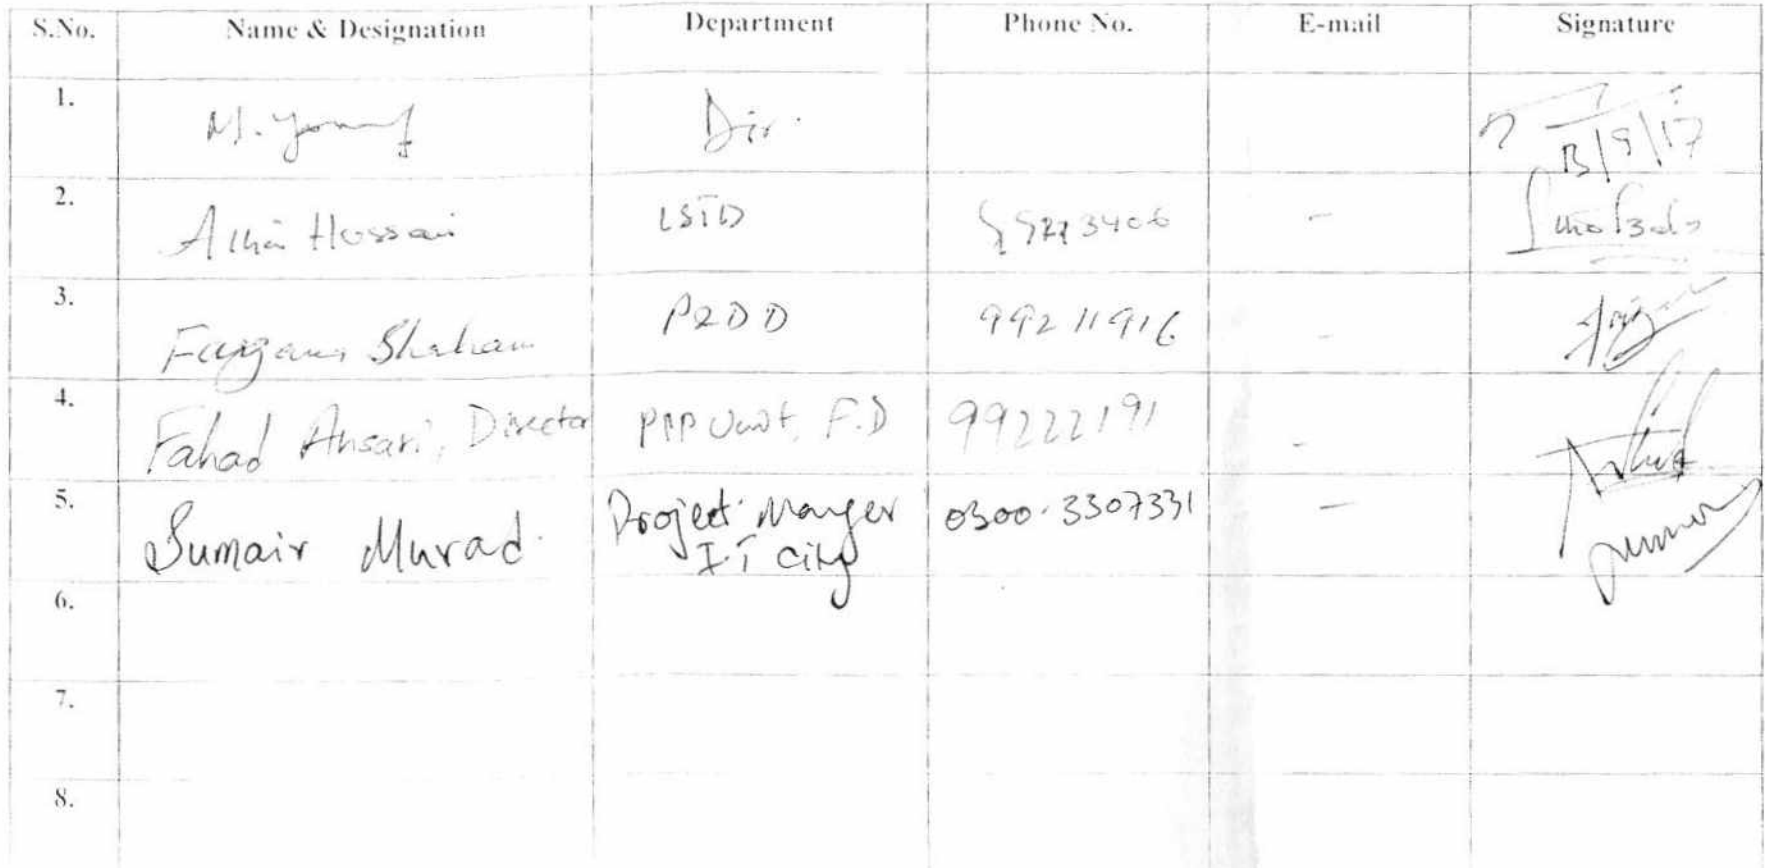 S.No. Name & Designation Department Phone No. E-mail Signature
1. M. Yousuf Dir. 13/9/17
2. Hussain -
3. Shaham P&DD 99211916 -
4. Fahad Ansari, Director PPP Unit, F.D 99222191 -
5. Sumair Murad. Project Manger 0300-3307331 -
I.T City
6.
7.
8.